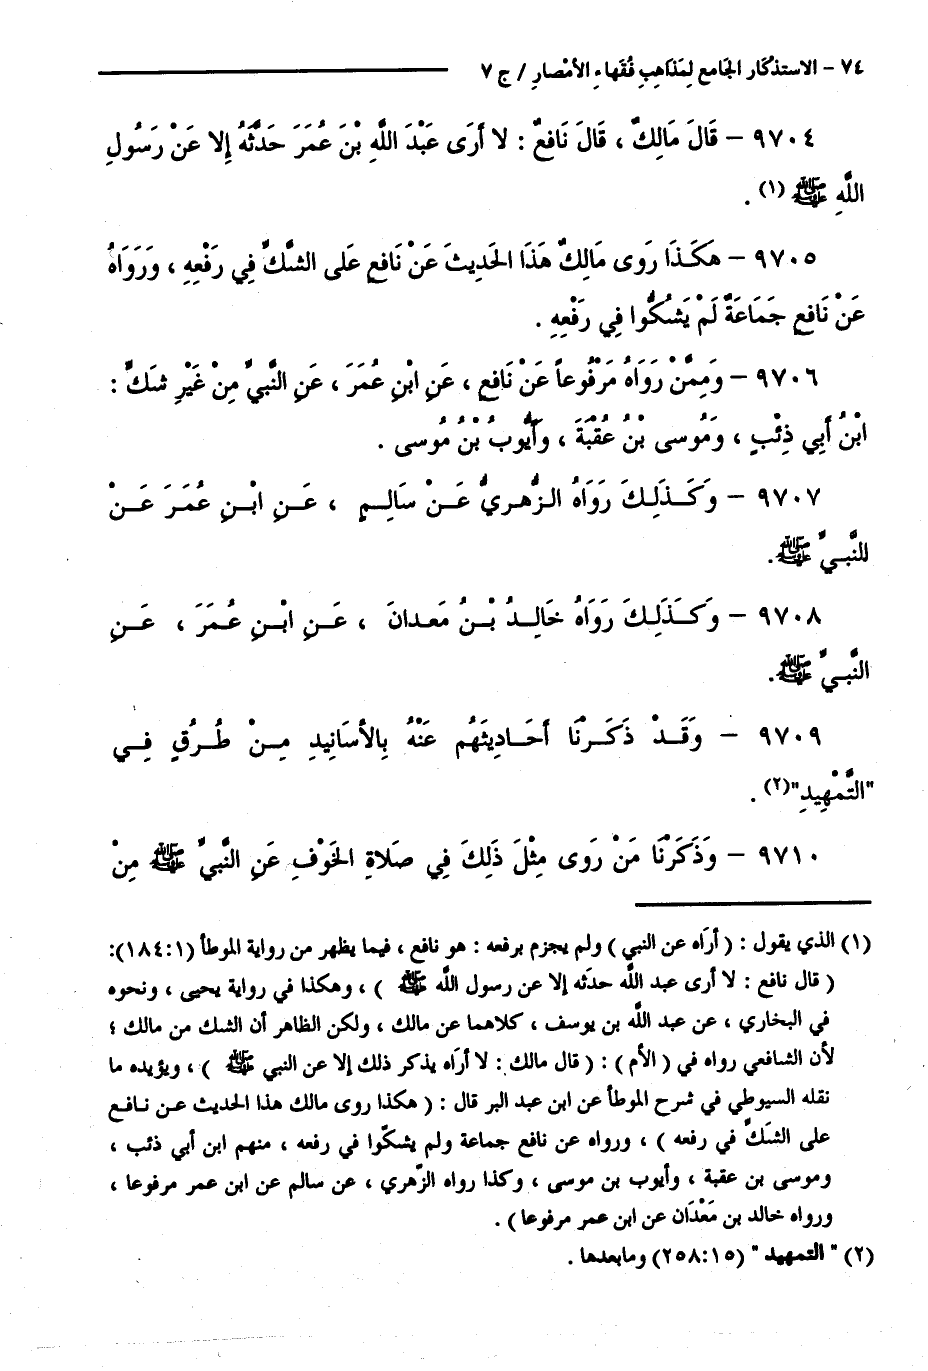 ٧٤ - الاستذكار الجامع لِمَذاهِبِ فُقَهاءِ الأمْصارِ / ج ٧
٩٧٠٤ - قَالَ مَالِكٌ ، قَالَ نَافعٌ : لا أرَى عَبْدَ اللَّهِ بْنَ عُمَرَ حَدَّثَهُ إِلا عَنْ رَسُولِ
اللَّهِ ﷺ (١) .
٩٧٠٥ - هكَـذَا رَوى مَالِكٌ هَذَا الحَدِيثَ عَنْ نَافعٍ عَلى الشَّكِّ فِي رَفْعِهِ ، وَرَوَاهُ
عَنْ نَافعٍ جَمَاعَةٌ لَمْ يَشُكُّوا فِي رَفْعِهِ .
٩٧٠٦ - وَمِمَّنْ رَوَاهُ مَرْفُوعاً عَنْ نَافعٍ ، عَنِ ابْنِ عُمَرَ ، عَنِ النَّبِيِّ مِنْ غَيْرِ شَكٍّ :
ابْنُ أَبِي ذِئْبٍ ، وَمُوسى بْنُ عُقْبَةَ ، وأَيُّوبُ بْنُ مُوسى .
٩٧٠٧ - وَكَـذَلِـكَ رَوَاهُ الـزُّهـرِيُّ عَـنْ سَالِـمٍ ، عَـنِ ابْـنِ عُمَرَ عَـنْ
للنَّبـيِّ ﷺ.
٩٧٠٨ - وَكَـذَلِـكَ رَوَاهُ خَالِـدُ بْـنُ مَعـدانَ ، عَـنِ ابْـنِ عُـمَرَ ، عَـنِ
النَّبـيِّ ﷺ.
٩٧٠٩ - وَقَـدْ ذَكَـرْنَا أحَـادِيثَهُم عَنْهُ بِالأسَانِيدِ مِـنْ طُـرُقٍ فِـي
"التَّمْهِيدِ"(٢) .
٩٧١٠ - وَذَكَرْنَا مَنْ رَوى مِثْلَ ذَلِكَ فِي صَلاةِ الخَوْفِ عَنِ النَّبيِّ ﷺ مِنْ
(١) الذي يقول : ( أرَاه عن النبي ) ولم يجزم برفعه : هو نافع ، فيما يظهر من رواية الموطأ (١٨٤:١):
( قال نافع : لا أرى عبد اللَّه حدثَه إلا عن رسول اللَّه ﷺ ) ، وهكذا في رواية يحيى ، ونحوه
في البخاري ، عن عبد اللَّه بن يوسف ، كلاهما عن مالك ، ولكن الظاهر أن الشك من مالك ؛
لأن الشافعي رواه في ( الأم ) : ( قال مالك : لا أرَاه يذكر ذلك إلا عن النبي ﷺ ) ، ويؤيده ما
نقله السيوطي في شرح الموطأ عن ابن عبد البر قال : ( هكذا روى مالك هذا الحديث عـن نـافـع
على الشكِّ في رفعه ) ، ورواه عن نافع جماعة ولم يشكّوا في رفعه ، منهم ابن أبي ذئب ،
وموسى بن عقبة ، وأيوب بن موسى ، وكذا رواه الزّهري ، عن سالم عن ابن عمر مرفوعا ،
ورواه خالد بن مَعْدَان عن ابن عمر مرفوعا) .
(٢) " التمهيد " (٢٥٨:١٥) ومابعدها .